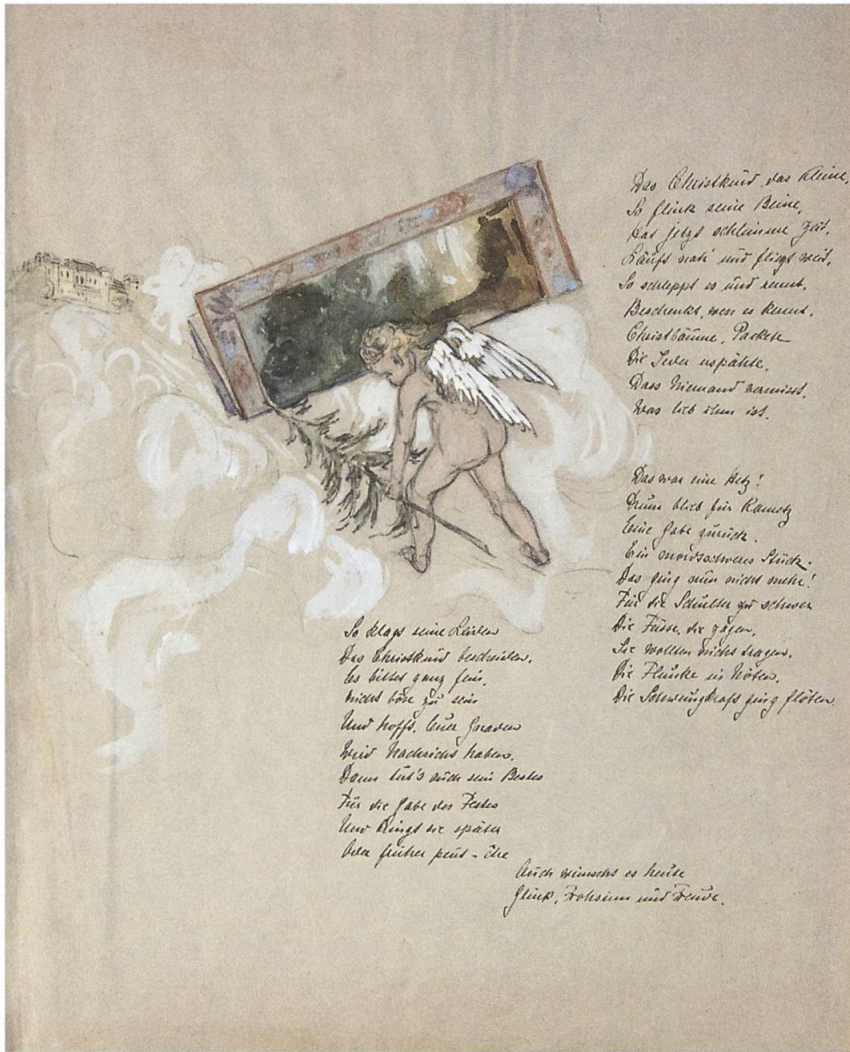 Das Christkind, das kleine,
So flink seine Beine,
Hat jetzt schlimme Zeit,
Läuft nah' und fliegt weit,
So schleppt es und rennt,
Beschenkt, wen es kennt,
Christbäume, Packete
Die Jeder erspähte,
Dass Niemand vermisst,
Was lieb ihm ist.
Das war eine Hetz!
Drum blieb für Rametz
Eine Gabe zurück.
Ein mordsschweres Stück.
Das ging nun nicht mehr!
Für die Schulter zu schwer
Die Füsse, die zagen,
Sie wollten nicht tragen,
Die Flanke in Nöten,
Die Schwungkraft ging flöten.
So klagt seine Leiden
Das Christkind bescheiden,
Es bittet ganz fein,
Nicht böse zu sein
Und hofft, Euer Gnaden
Wird Nachsicht haben.
Dann tut's auch sein Bestes
Für die Gabe des Festes
Und bringt sie später
Oder früher peut-être
Auch wünscht es heute
Glück, Frohsinn und Freude.